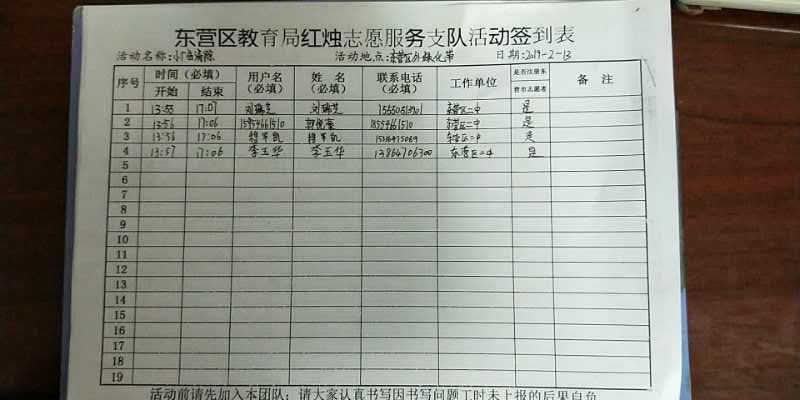 东营区教育局红烛志愿服务支队活动签到表
活动名称: 活动地点:东营区外绿化带 日期:2019-2-13
序号 时间（必填） 用户名（必填） 姓名（必填） 联系电话（必填） 工作单位 是否注册东营市志愿者 备注
开始 结束
1 13:55 17:07 刘瑞芝 刘瑞芝 东营区二中 是
2 13:56 17:06 18554661510 东营区二中 是
3 13:56 17:06 东营区二中 是
4 13:57 17:06 李玉华 李玉华 13864706300 东营区二中 是
5
6
7
8
9
10
11
12
13
14
15
16
17
18
19
活动前请先加入本团队；请大家认真书写因书写问题工时未上报的后果自负